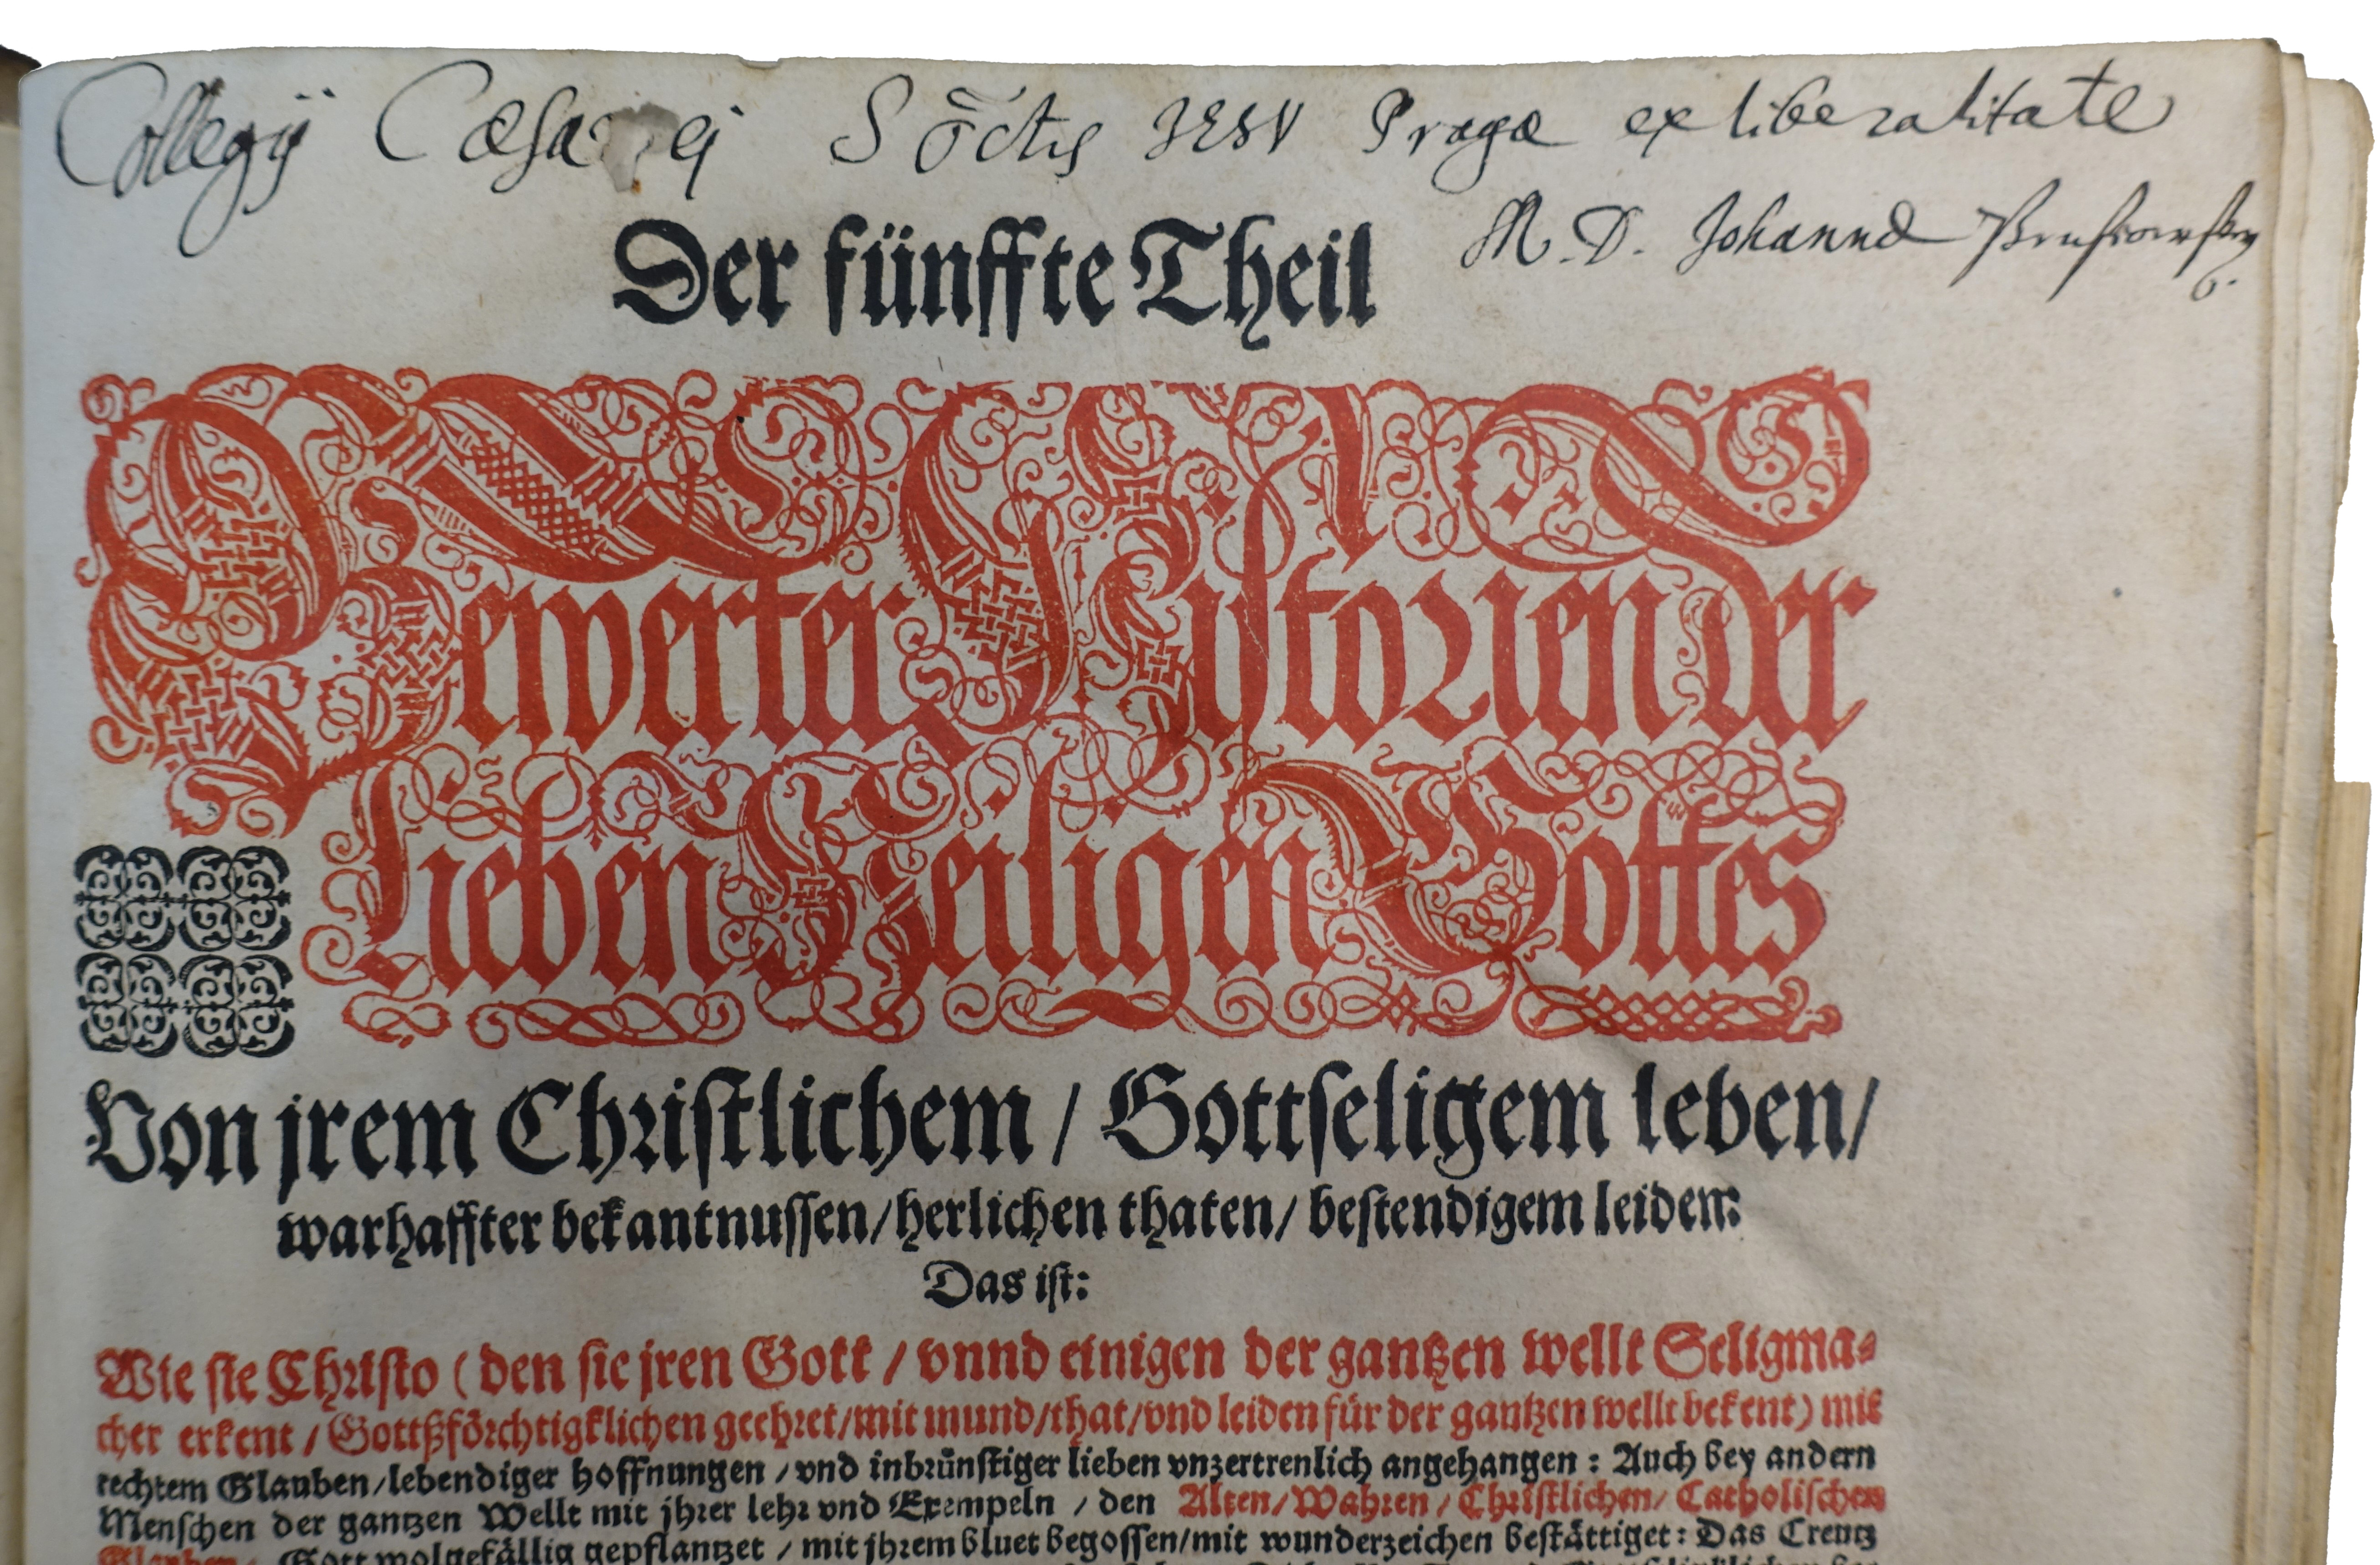 Collegij Cæsarei Soctis JESV Pragæ ex liberalitate
M. D. Johannis
Der fünffte Theil
Bewerter Historien der
lieben Heiligen Gottes
Von jrem Christlichem / Gottseligem leben /
warhaffter bekantnussen / herlichen thaten / bestendigem leiden:
Das ist:
Wie sie Christo ( den sie jren Gott / vnnd einigen der gantzen wellt Seligma-
cher erkent / Gottßförchtigklichen geehret / mit mund / that / vnd leiden für der gantzen wellt bekent ) mit
rechtem Glauben / lebendiger hoffnungen / vnd inbrünstiger lieben vnzertrenlich angehangen : Auch bey andern
Menschen der gantzen Wellt mit jhrer lehr vnd Exempeln / den Alten / Wahren / Christlichen / Catholischen
Glauben / Gott wolgefällig gepflantzet / mit jhrem bluet begossen / mit wunderzeichen bestättiget : Das Creutz